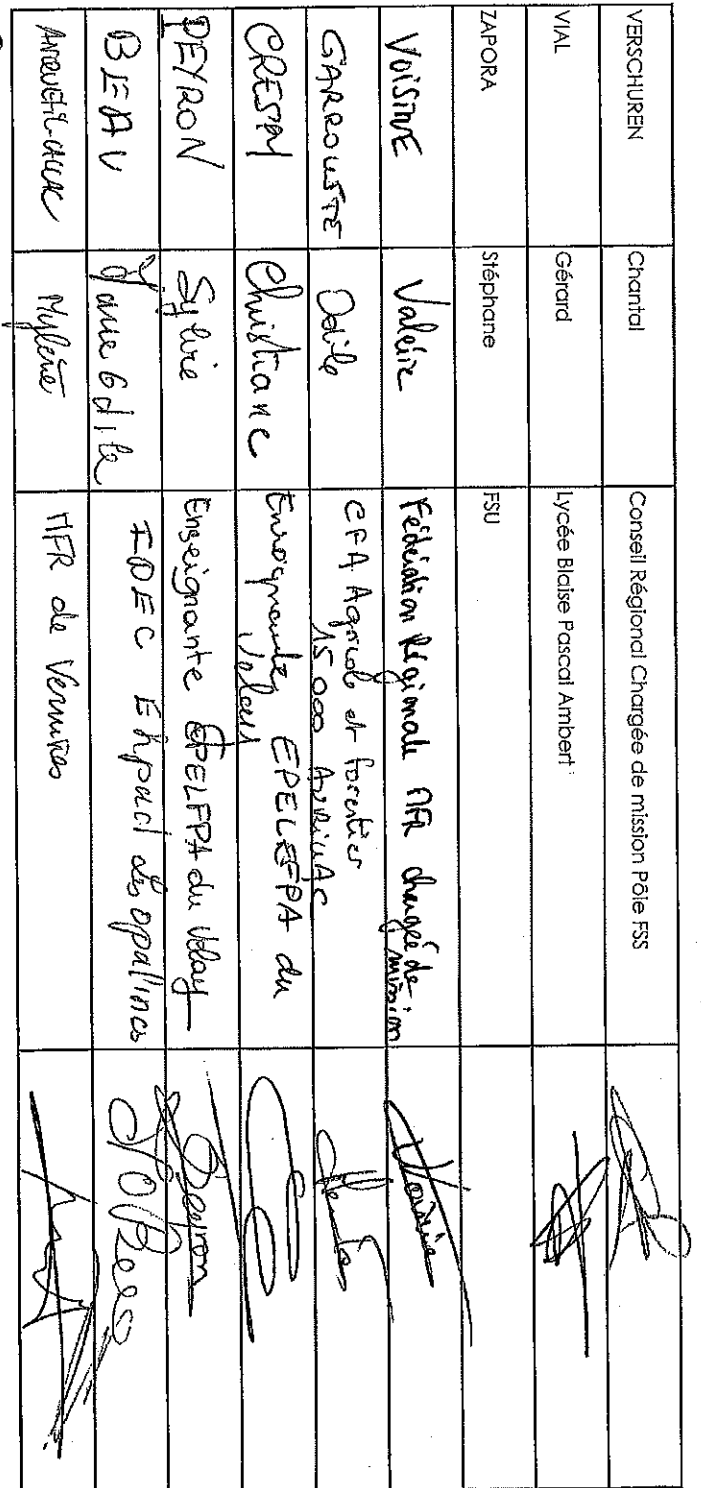 VERSCHUREN Chantal Conseil Régional Chargée de mission Pôle FSS
VIAL Gérard Lycée Blaise Pascal Ambert
ZAPORA Stéphane FSU
VOISINE Valérie Fédération Régionale MFR chargée de
mission
GARROUSTE Odile CFA Agricole et forestier
15 000 AURILLAC
CRESPY Christiane Enseignante EPELEFPA du
Velay
PEYRON Sylvie Enseignante EPELFPA du Velay
BEAU Odile IDEC Ehpad les opalines
Mylène MFR de Vernines